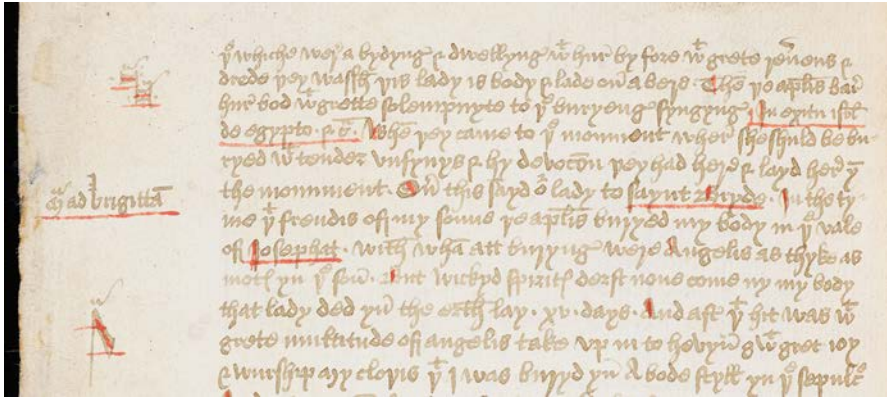 þͭ whiche wer a bydyng & dwellyng wͭ hur by fore wͭ grete reuerens &
drede þey wassh þis lady is body & lade on a bere. Then þe aplis bar
hur bod wͭ grette solempnyte to þͤ buryeng syngyng In exitu isrl
de egypto. &. When þey came to þͤ monment wher she shuld be bu-
ryed wͭ tender & hy deuocon þey had here & layd here yn
the monnment. On this sayd oͬ lady to saynt Bryde. In the ty-
me þͭ frendis off my sonne þe aplis buryed my body in þͤ vale
off Josephat. with whan att buryng were Angelis as thyke as
mot yn þͤ son. But wickyd spirit derst none come ny my body
that lady ded yn the erth lay. xv. days. And aft þͭ hit was wͭ
grete multitude off angelis take vp in to hevyn wͭ gret ioy
& wurship my clopis þͭ I was buryd yn A bode styll yn þͤ sepulcͬ
ad brigittam